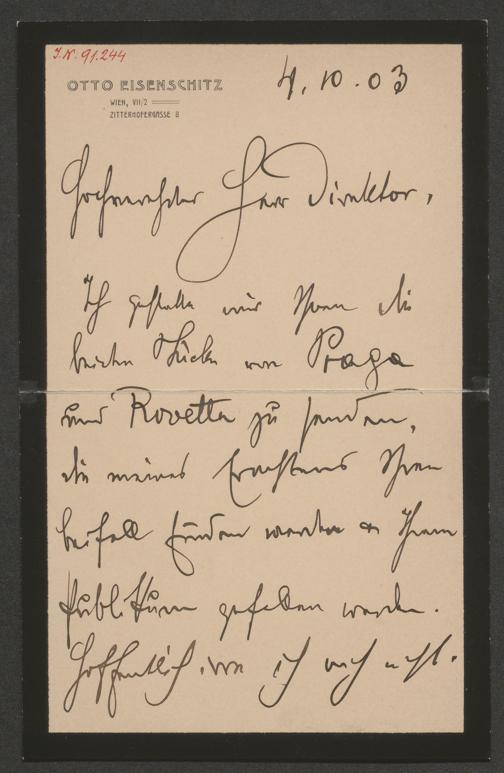 J.N. 91.244
OTTO EISENSCHITZ
WIEN, VII/2
ZITTERHOFERGASSE 8
4. 10. 03
Hochverehrter Herr Direktor,
Ich gestatte mir Ihnen die
beiden Stücke von Praga
und Rovetta zu senden,
die meines Erachtens Ihren
Beifall finden werden & Ihrem
Publikum gefallen werden.
Hoffentlich irre ich mich nicht.